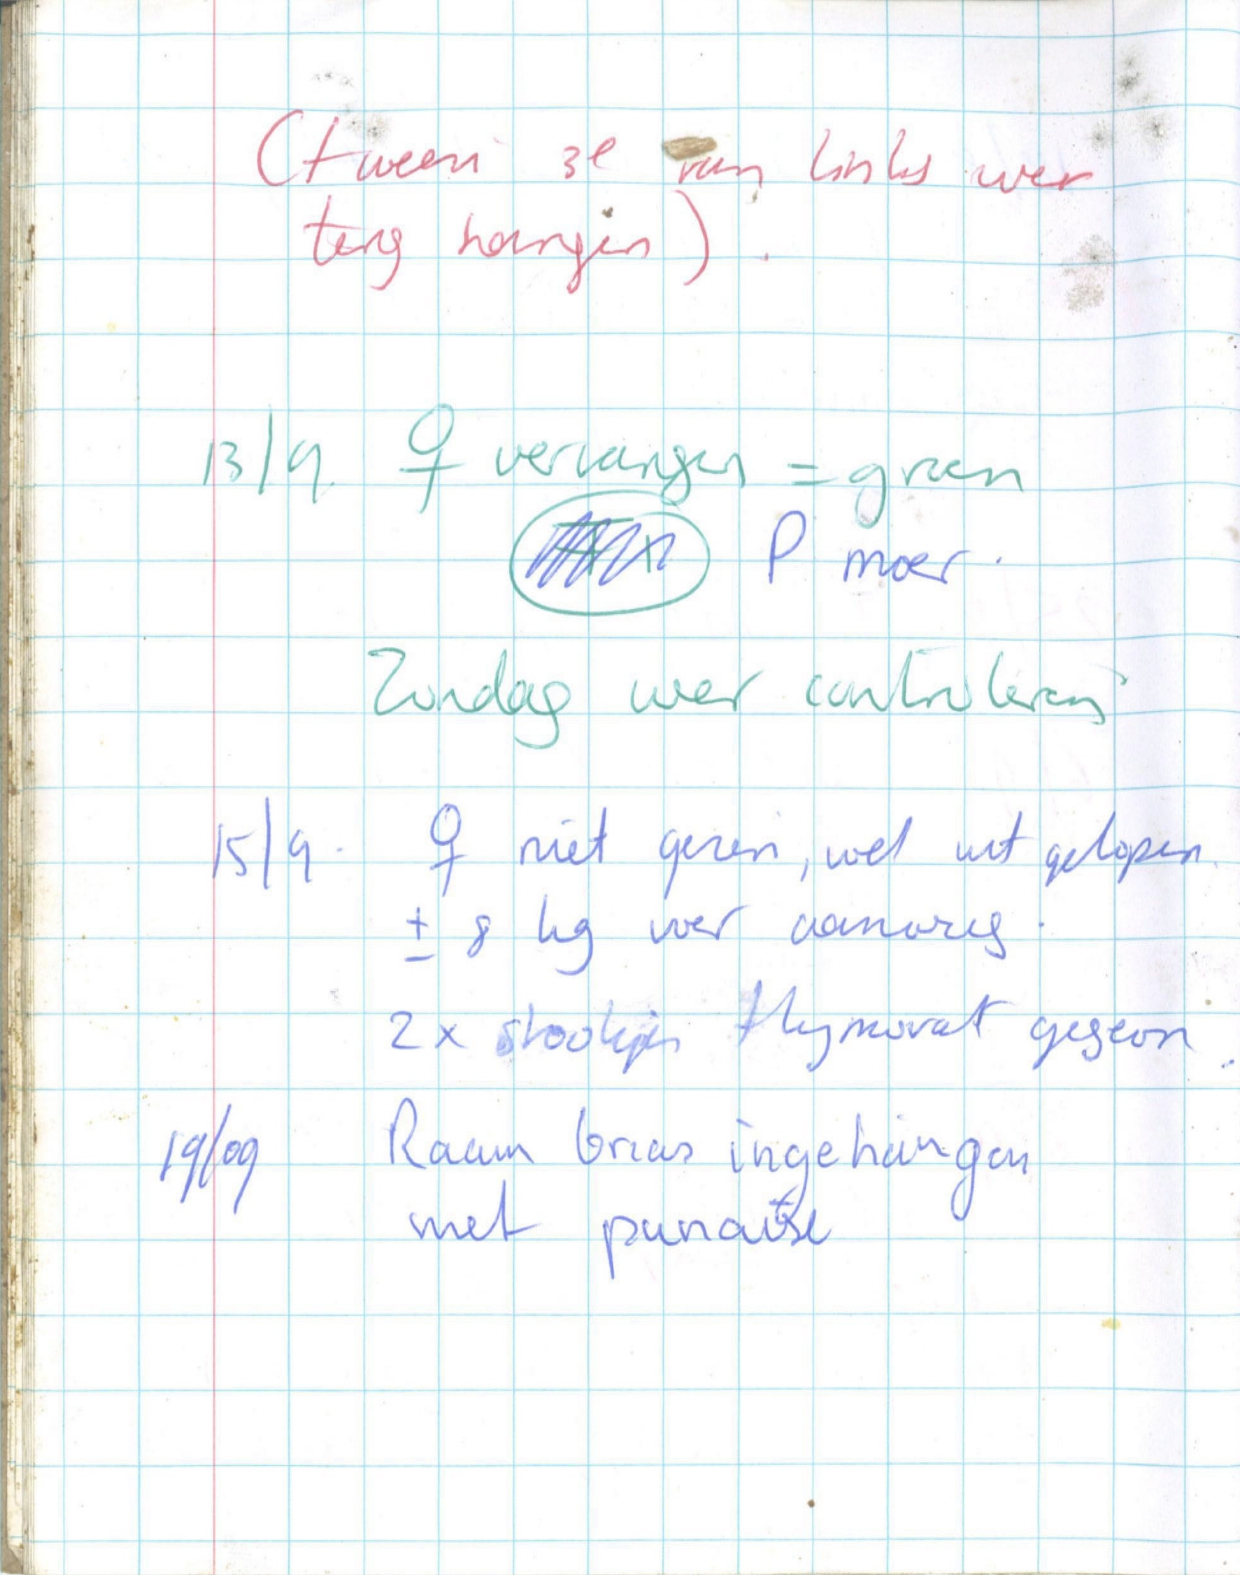 ( 3e van links weer
terug hangen).
13/9. ♀ vervangen = groen
P moer.
Zondag weer controleren
15/9. ♀ niet gezien, wel uitgelopen
± 8 kg voer aanwezig.
2x thymovat gegeven.
19/09 Raam broed ingehangen
met punaise